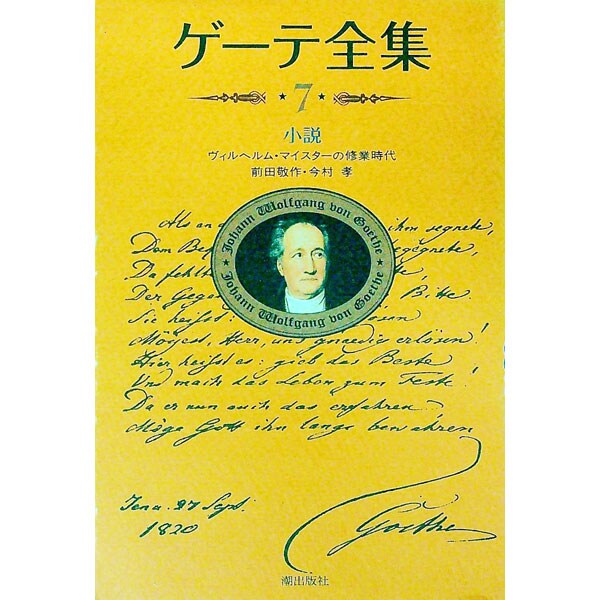 ゲーテ全集
7
小説
ヴィルヘルム・マイスターの修業時代
前田敬作・今村 孝
Johann Wolfgang von Goethe
Johann Wolfgang von Goethe
Als an ihm segnete,
Dem gegnete,
Da fehlt
Der Gegen Bitte.
Sie heisst:
Mögest, Herr, uns gnaedig erlösen!
Hier heisst es: gieb das Beste
Und mach das Leben zum Feste!
Da er nun auch das erfahren,
Möge Gott ihn lange bewahren
Jena 27 Sept.
1820
Goethe
潮出版社